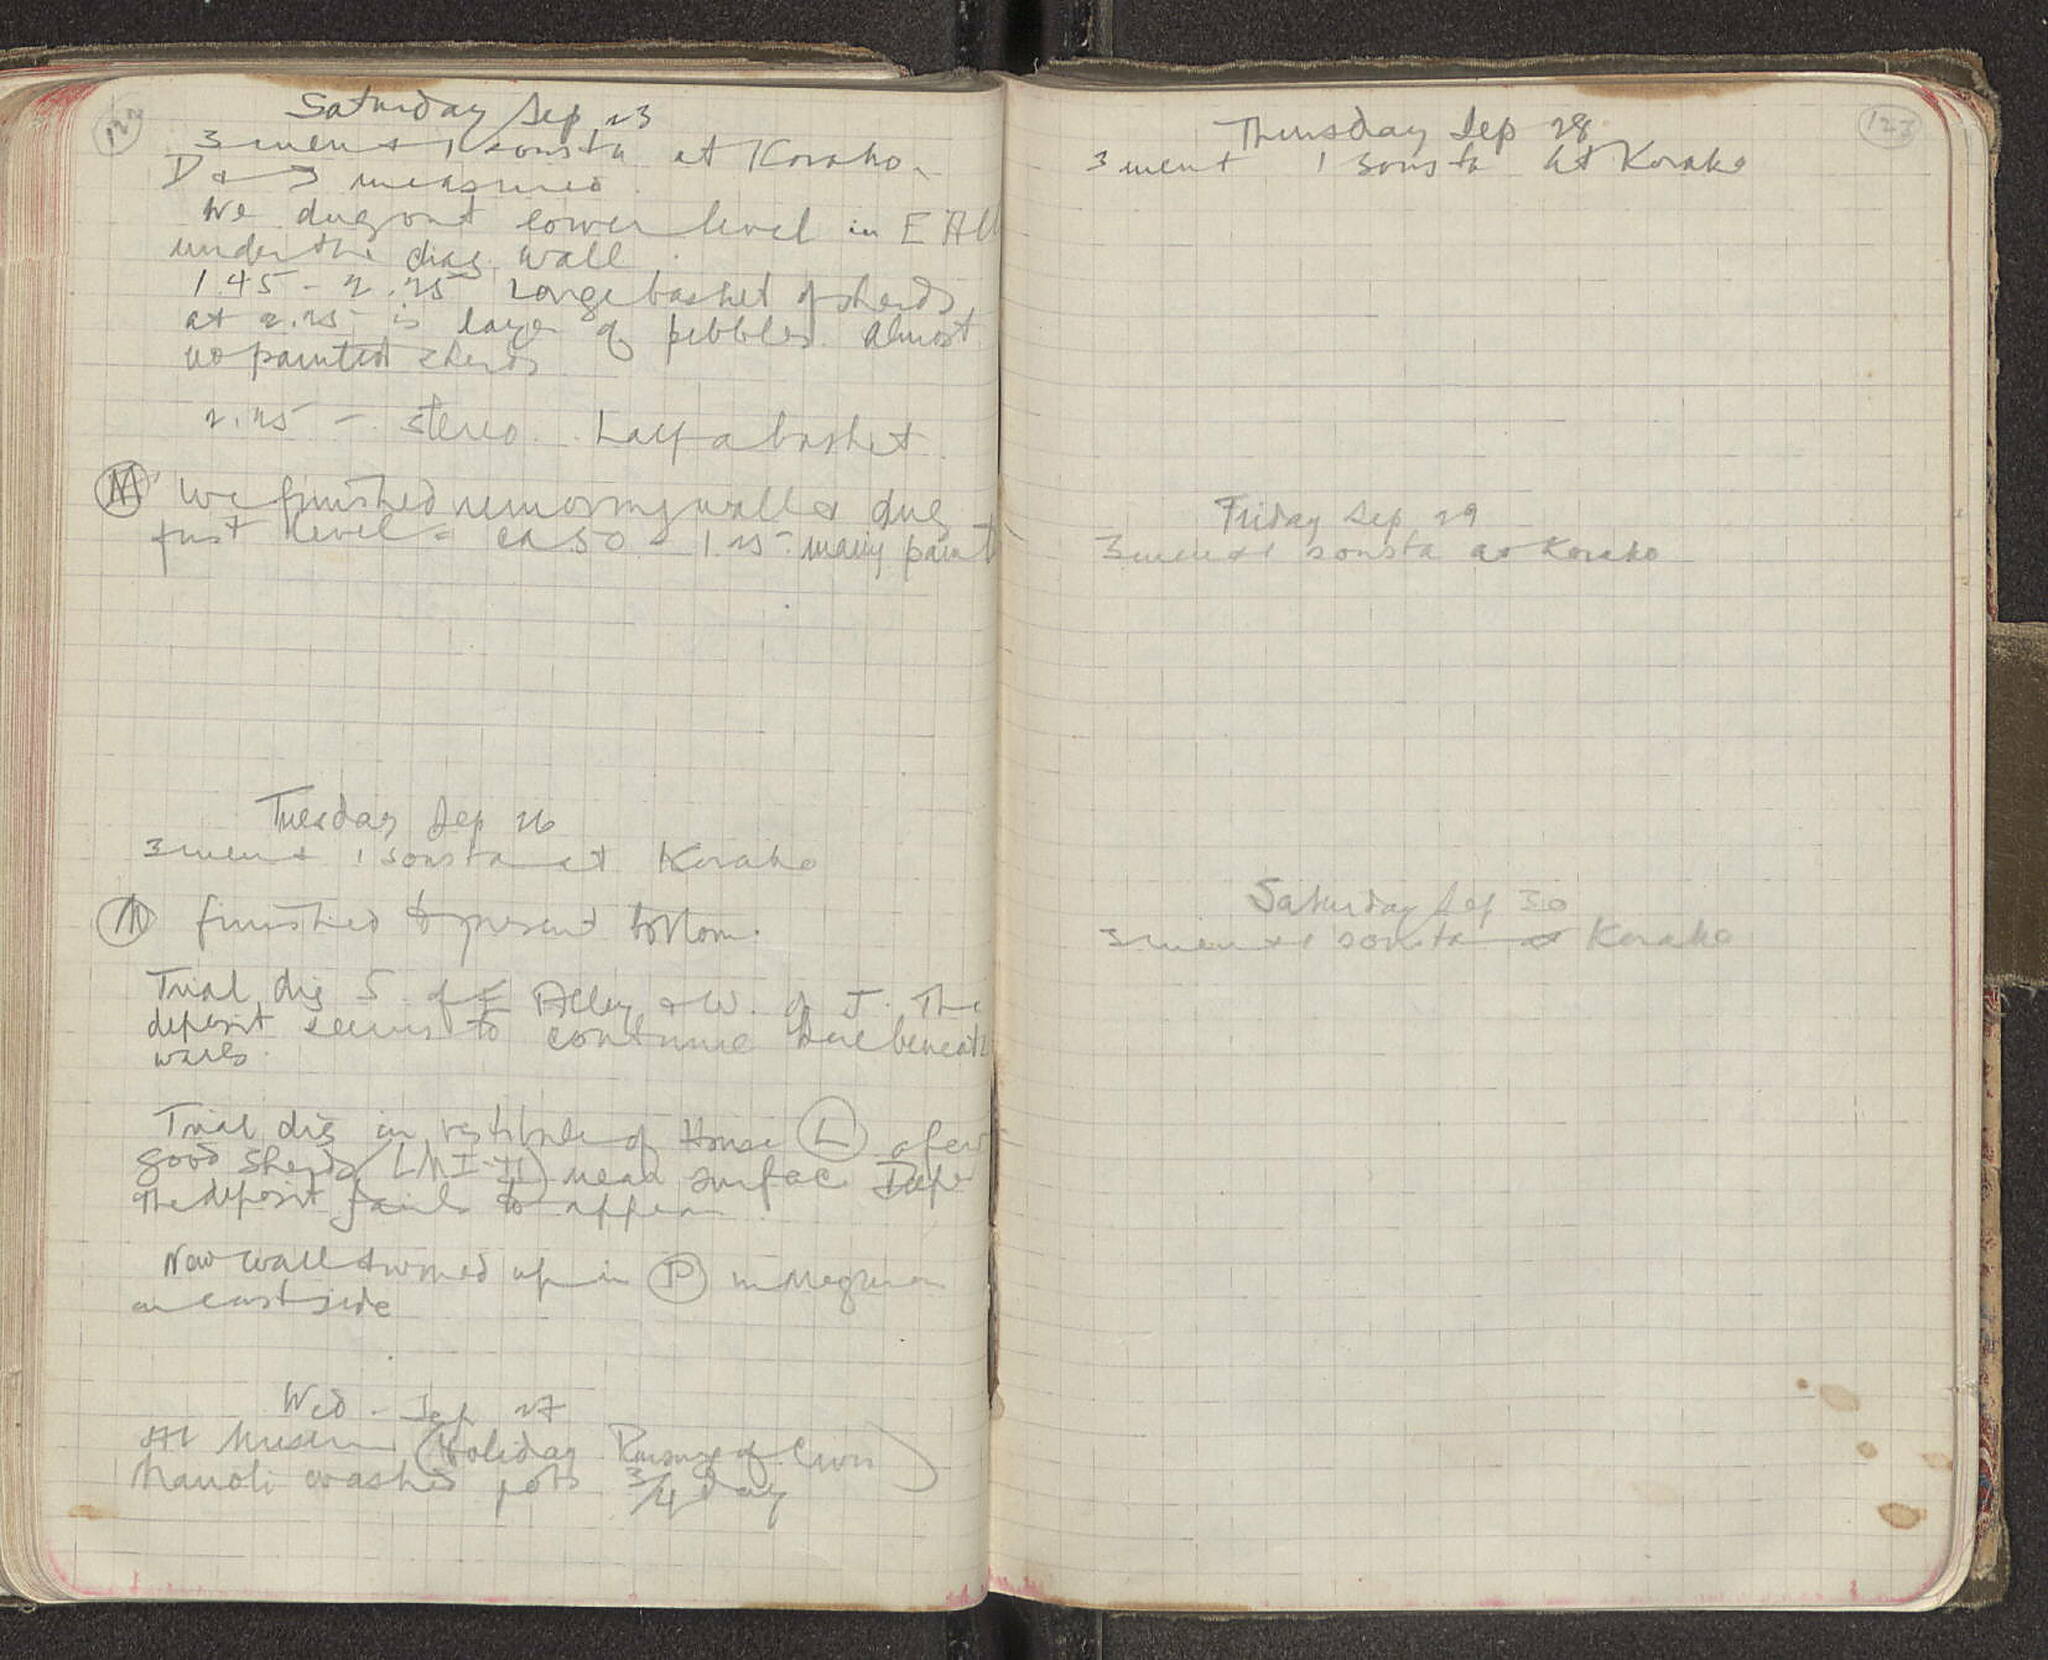 122
Saturday Sep 23
3 men & 1 sousta at Korako.
D & J measured.
We dug out lower level in E All
under the diag. wall.
1.45 - 2.25 Large basket of sherds
at 2.25 is layer of pebbles. Almost
no painted sherds
2.25 - stereo. Half a basket.
M We finished removing wall & dug
first level = ca 50 - 1.25. many paint
Tuesday Sep 26
3 men & 1 sousta at Korako
M finished to present bottom.
Trial dig S. of E Alley & W. of J. The
deposit seems to continue here beneath
walls.
Trial dig in vestibule of House L a few
good sherds (LH I-II) near surface Deeper
the deposit fails to appear
New wall turned up in P in Megaron
on east side
Wed. Sep 27
At Museum (Holiday Raising of Cross)
Manoli washed pots 3/4 day
123
Thursday Sep 28
3 men & 1 sousta at Korako
Friday Sep 29
3 men & 1 sousta at Korako
Saturday Sep 30
3 men & 1 sousta at Korako